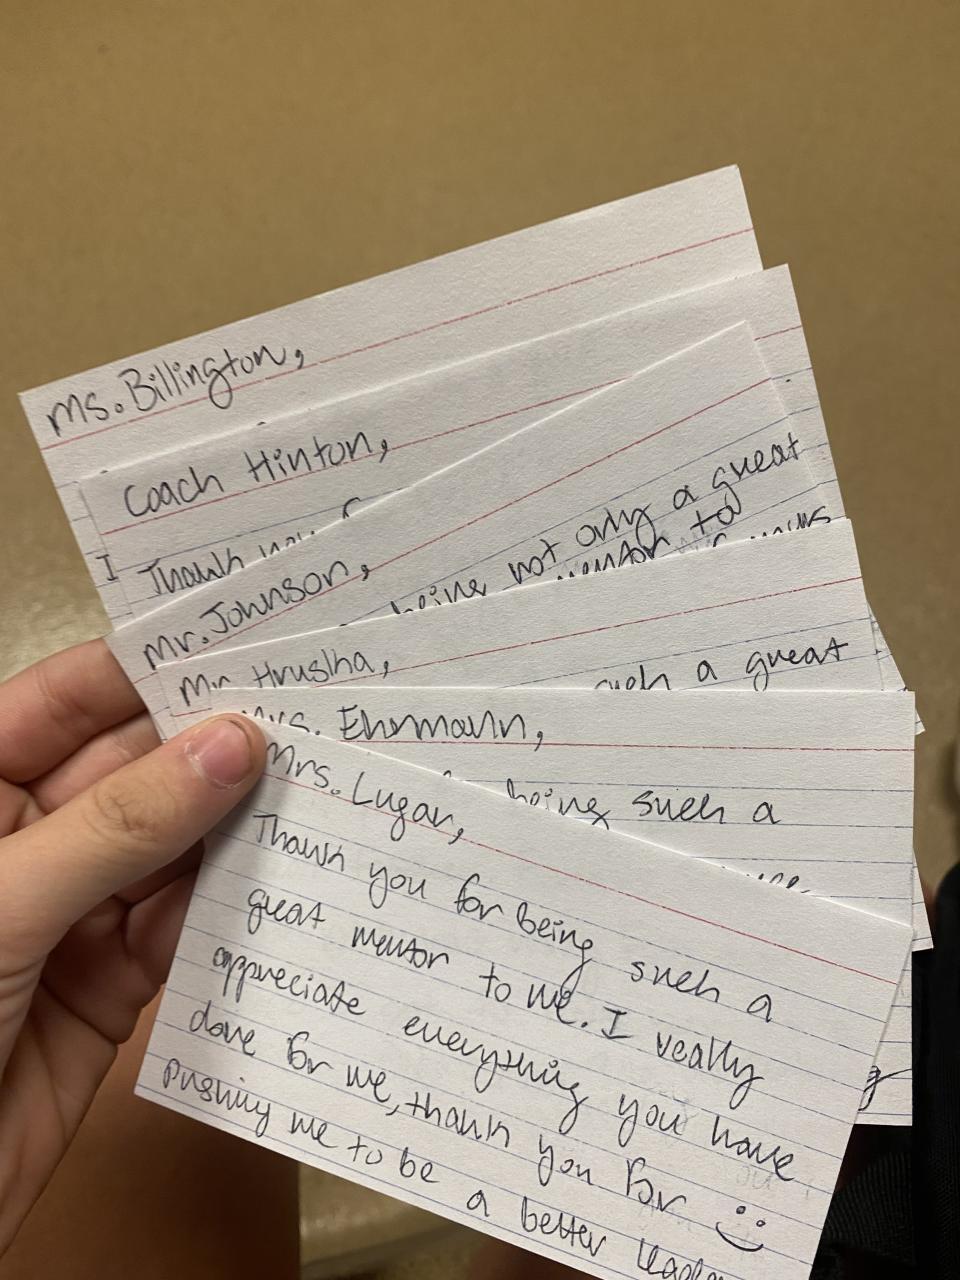 Ms. Billington,
I
Coach Hinton,
Thank you
Mr. Johnson,
being not only a great
mentor to
Mr. Hruslha,
such a great
Mrs. Ehrmann,
being such a
Mrs. Lugar,
Thank you for being such a
great mentor to me. I really
appreciate everything you have
done for me, thank you for
pushing me to be a better leader